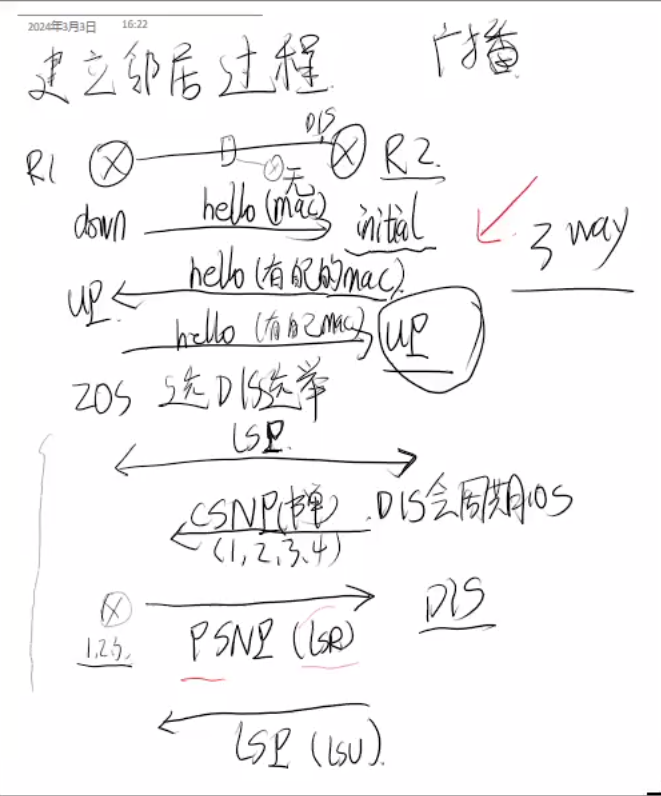 2024年3月3日 16:22
建立邻居过程 广播
DIS
R1 R2.
无
down hello(mac) initial
3 way
UP. hello(有配的mac)
hello(有自己mac) UP
20S 选DIS选举
LSP
CSNP(书单) .DIS会周期10S
(1,2,3,4)
DIS
1.2.3. PSNP (LSR)
LSP (LSU).